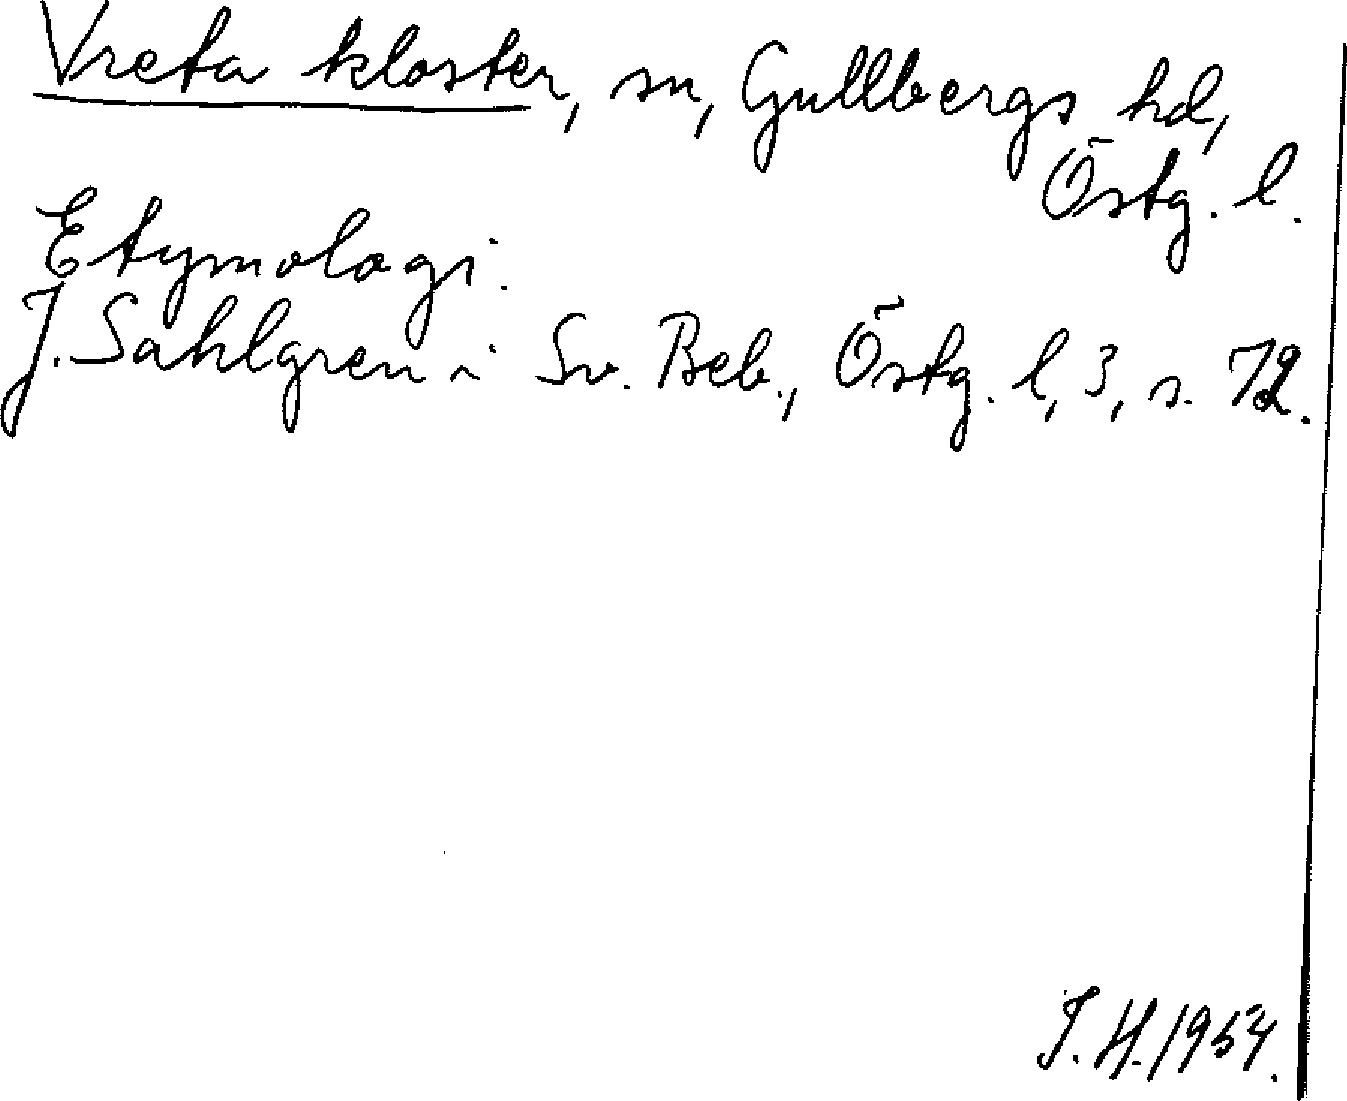 Vreta kloster, sn, Gullbergs hd,
Östg. l.
Etymologi.
J. Sahlgren i Sv. Beb., Östg. l, 3, s. 72.